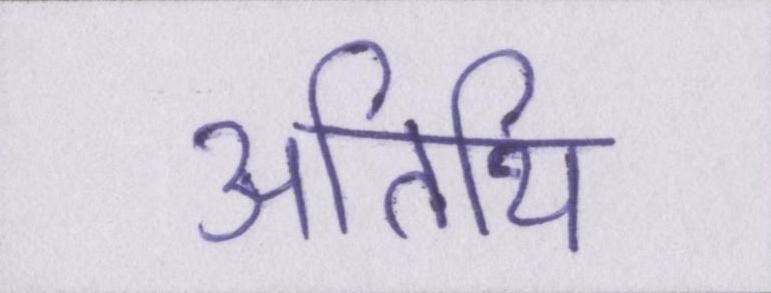 अतिथि